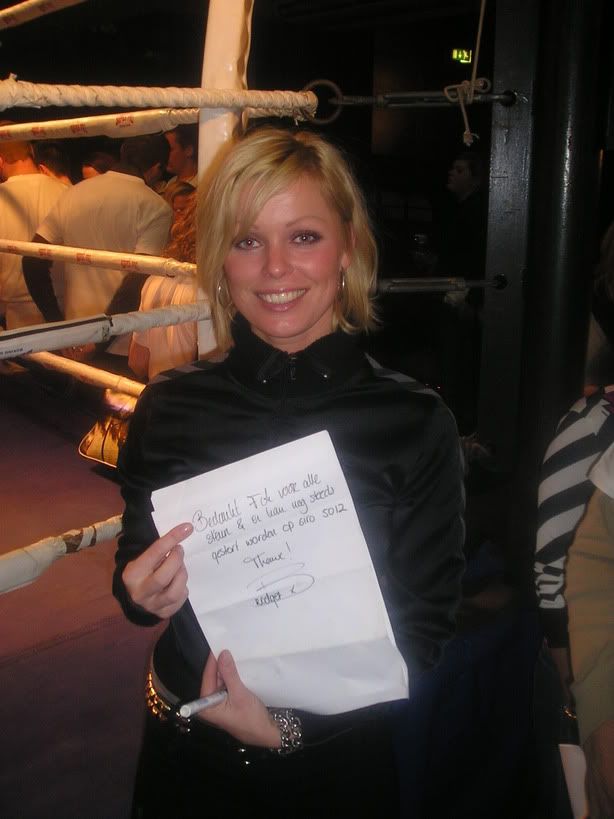 Bedankt Fok voor alle
steun & er kan nog steeds
gestort worden op giro 5012
Thanx!
Bridget x